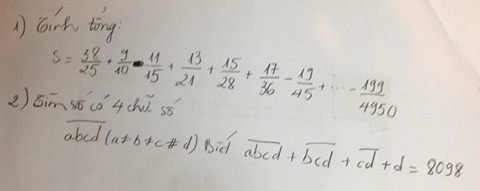 1) Tính tổng:
S = 38/25 + 9/10 - 11/15 + 13/21 + 15/28 + 17/36 - 19/45 + ... - 199/4950
2) Tìm số có 4 chữ số
abcd (a ≠ b ≠ c ≠ d) Biết abcd + bcd + cd + d = 8098